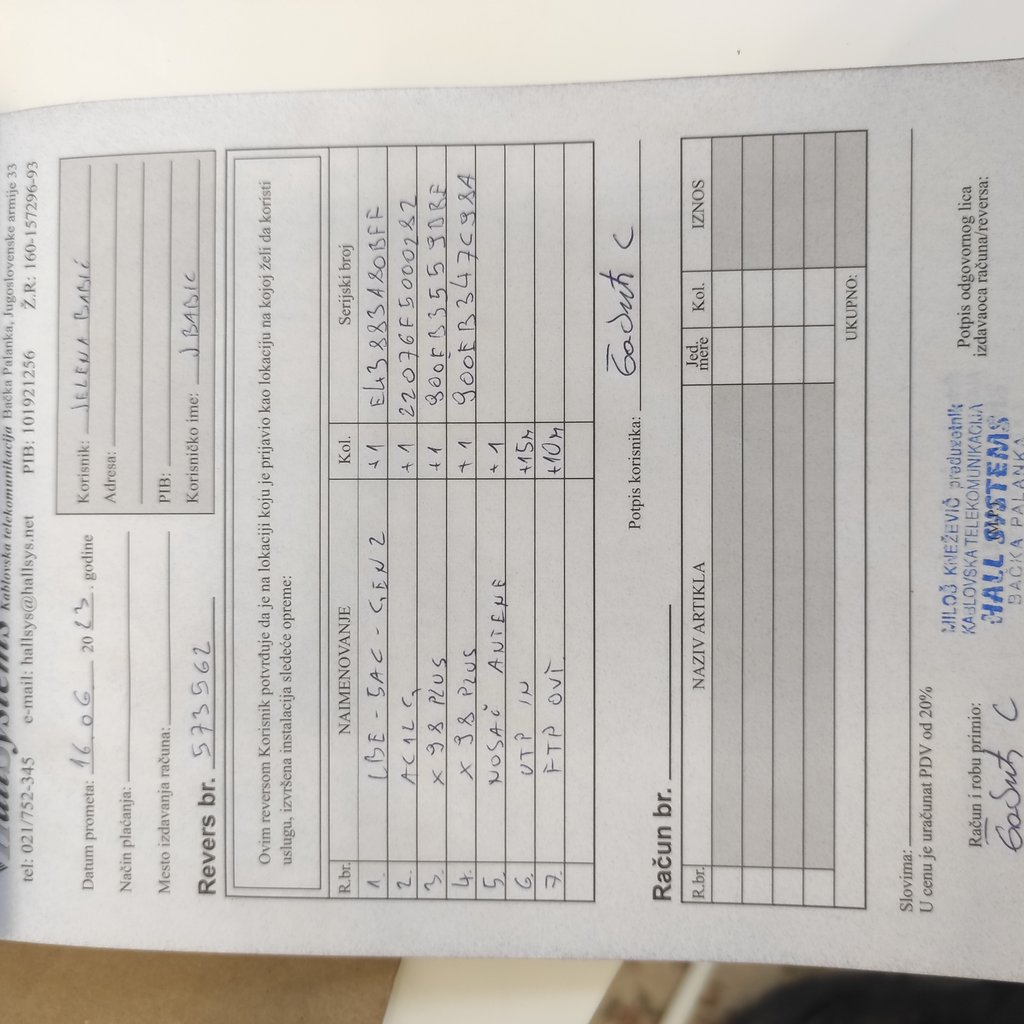 Kablovska telekomunikacija Bačka Palanka, Jugoslovenske armije 33
tel: 021/752-345 e-mail: hallsys@hallsys.net PIB: 101921256 Ž.R: 160-157296-93
Datum prometa: 16.06 2023. godine
Način plaćanja:
Mesto izdavanja računa:
Korisnik: JELENA BABIĆ
Adresa:
PIB:
Korisničko ime: JBABIC
Revers br. 573562
Ovim reversom Korisnik potvrđuje da je na lokaciji koju je prijavio kao lokaciju na kojoj želi da koristi
uslugu, izvršena instalacija sledeće opreme:
R.br. NAIMENOVANJE Kol. Serijski broj
1. LBE-5AC-GEN2 +1 E43883A80BFF
2. AC12G +1 22076F5000282
3. X98 PLUS +1 900EB3559DBE
4. X98 PLUS +1 900EB347C98A
5. NOSAČ ANTENE +1
6. UTP IN +15m
7. FTP OVT +10m
Potpis korisnika:
Račun br.
R.br. NAZIV ARTIKLA Jed. mere Kol. IZNOS
UKUPNO:
Slovima:
U cenu je uračunat PDV od 20%
Račun i robu primio:
MILOŠ KNEŽEVIĆ preduzetnik
KABLOVSKA TELEKOMUNIKACIJA
HALL SYSTEMS
BAČKA PALANKA
Potpis odgovornog lica
izdavaoca računa/reversa: